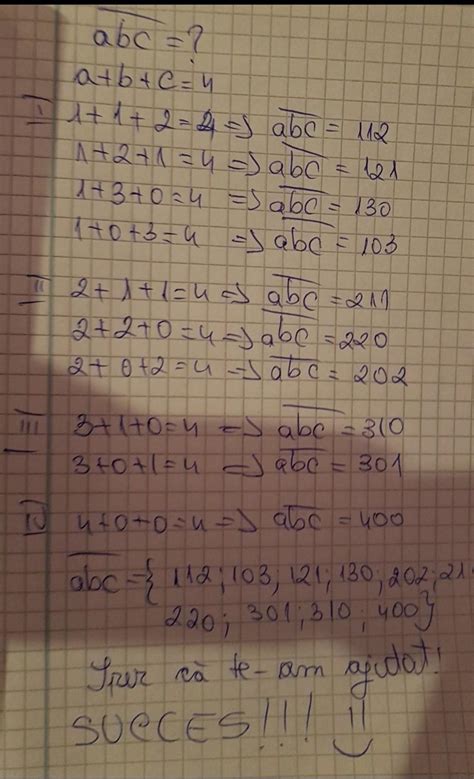 abc = ?
a+b+c=4
I 1+1+2=4 => abc = 112
1+2+1=4 => abc = 121
1+3+0=4 => abc = 130
1+0+3=4 => abc = 103
II 2+1+1=4 => abc = 211
2+2+0=4 => abc = 220
2+0+2=4 => abc = 202
III 3+1+0=4 => abc = 310
3+0+1=4 => abc = 301
IV 4+0+0=4 => abc = 400
abc = { 112; 103; 121; 130; 202; 21
220; 301; 310; 400}
Sper că te-am ajutat!
SUCCES!!! =)